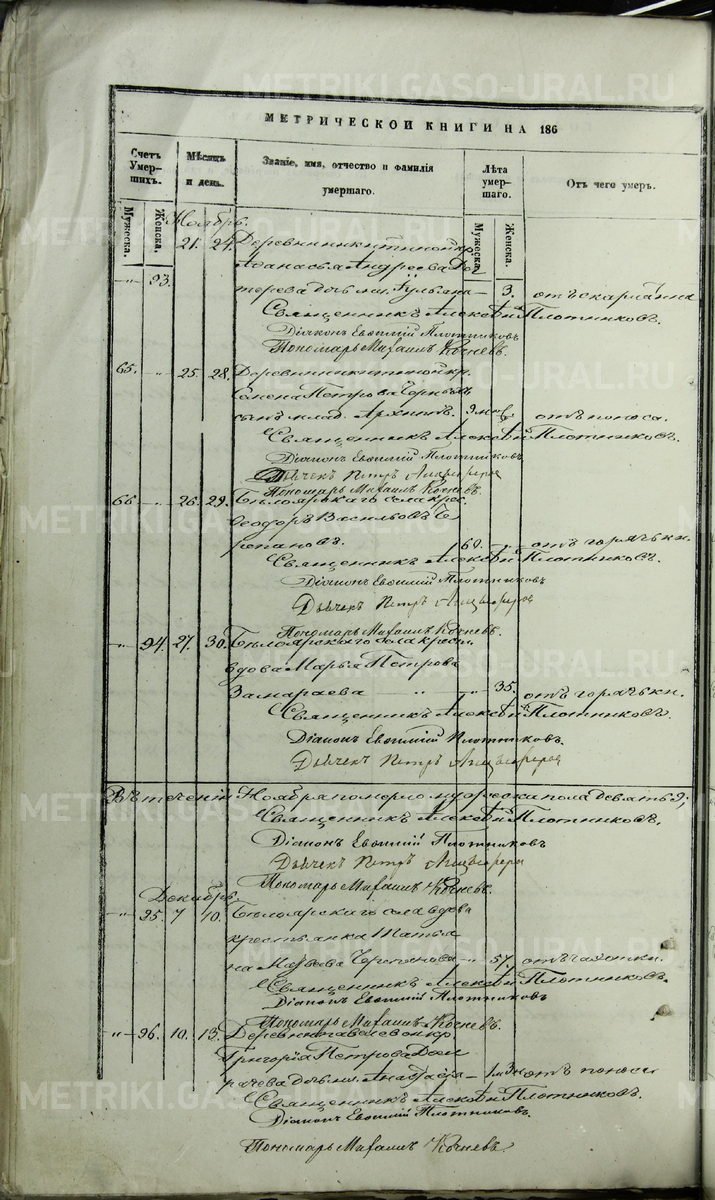 METRIKI.GASO-URAL.RU
МЕТРИЧЕСКОЙ КНИГИ НА 186
Счетъ Умершихъ.
Мѣсяцъ и день.
Званіе, имя, отчество и фамилія умершаго.
Лѣта умершаго.
Отъ чего умеръ.
Мужеска.
Женска.
Мужеска.
Женска.
Ноябрь.
21. 24. Деревни
Аѳанасья Андреева
93. дочь Іульяна 3. отъ скарлатина
Священникъ Алексѣй Плотниковъ.
Діаконъ Евѳимій Плотниковъ
Пономарь Михаилъ Кочневъ.
65. 25. 28. Деревни
Семена Петрова
сынъ млад. Архипъ. 9 отъ поноса.
Священникъ Алексѣй Плотниковъ.
Діаконъ Евѳимій Плотниковъ
Дьячекъ Петръ
Пономарь Михаилъ Кочневъ.
66. 26. 29. Бѣлоярскаго села крес.
Ѳеодоръ Васильевъ Че
репановъ. 60. отъ горячки.
Священникъ Алексѣй Плотниковъ.
Діаконъ Евѳимій Плотниковъ
Дьячекъ Петръ
Пономарь Михаилъ Кочневъ.
94. 27. 30. Бѣлоярскаго села крест.
вдова Марья Петрова
Замараева 35. отъ горячки.
Священникъ Алексѣй Плотниковъ.
Діаконъ Евѳимій Плотниковъ.
Дьячекъ Петръ
Въ теченіи Ноября померло мужеска пола девять 9;
Священникъ Алексѣй Плотниковъ.
Діаконъ Евѳимій Плотниковъ
Дьячекъ Петръ
Пономарь Михаилъ Кочневъ.
Декабрь.
95. 7 10. Бѣлоярскаго села вдова
крестьянка Татья
на Матвѣева Черепанова 57. отъ чахотки.
Священникъ Алексѣй Плотниковъ.
Діаконъ Евѳимій Плотниковъ
Пономарь Михаилъ Кочневъ.
96. 10. 13. Деревни
Григорія Петрова
дочь Анастасія отъ поноса
Священникъ Алексѣй Плотниковъ.
Діаконъ Евѳимій Плотниковъ.
Пономарь Михаилъ Кочневъ.